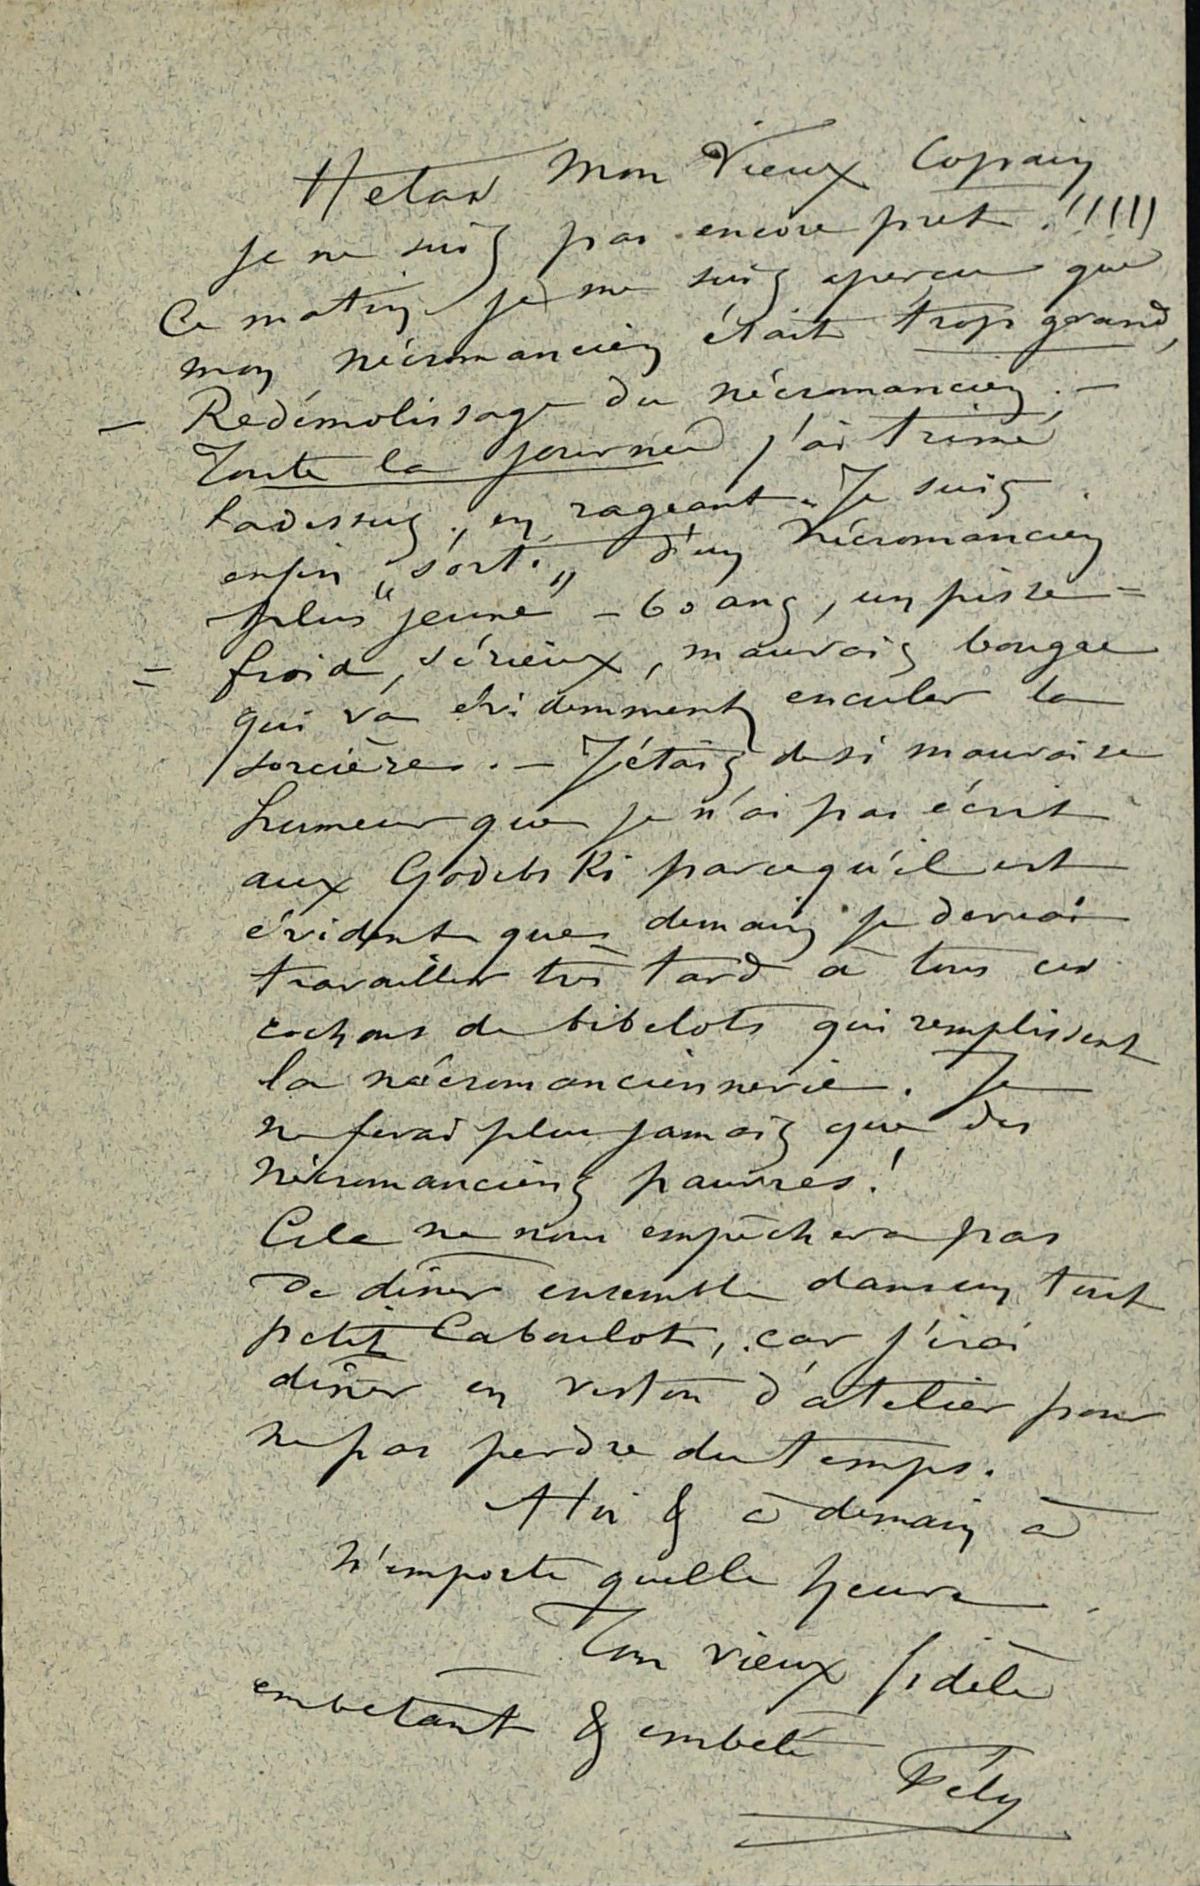 Helas Mon Vieux Copain
je ne suis pas encore pret !!!!!
Ce matin je me suis aperçu que
mon nécromancien était trop grand,
— Redémolissage du nécromancien. —
Toute la journée j'ai trimé
ladessus, en rageant. Je suis
enfin "sorti" d'un Nécromancien
plus "jeune" – 60 ans, un pisse =
= froid, sérieux, mauvais bougre
qui va évidemment enculer la
sorcière. – J'étais de si mauvaise
humeur que je n'ai pas écrit
aux Godebski parcequ'il est
évident que demain je devrai
travailler très tard à tous ces
cochons de bibelots qui remplissent
la nécromanciennerie. Je
ne ferai plus jamais que des
Nécromanciens pauvres!
Cela ne nous empêchera pas
de dîner ensemble dans un tout
petit Caboulot, car j'irai
dîner en veston d'atelier pour
ne pas perdre du temps.
A toi & à demain à
n'importe quelle heure
Ton vieux fidèle
embetant & embeté
Fély